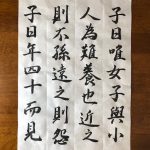 子曰唯女子與小
人為難養也近之
則不孫遠之則怨
子曰年四十而見